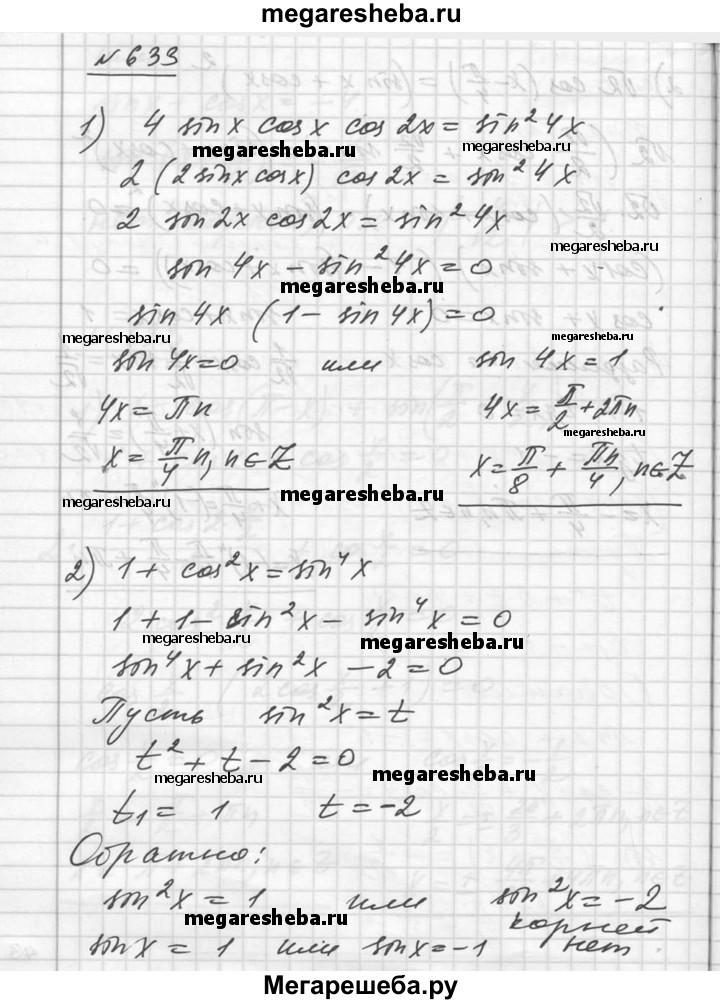 megaresheba.ru
№ 633
1) 4 sin x cos x cos 2x = sin² 4x
megaresheba.ru
2 (2 sin x cos x) cos 2x = sin² 4x
2 sin 2x cos 2x = sin² 4x
megaresheba.ru
sin 4x − sin² 4x = 0
megaresheba.ru
sin 4x (1 − sin 4x) = 0
megaresheba.ru megaresheba.ru
sin 4x = 0 или sin 4x = 1
4x = πn 4x = π/2 + 2πn
megaresheba.ru
x = π/4 n, n∈Z x = π/8 + πn/4, n∈Z
megaresheba.ru megaresheba.ru
2) 1 + cos² x = sin⁴ x
1 + 1 − sin² x − sin⁴ x = 0
megaresheba.ru megaresheba.ru
sin⁴ x + sin² x − 2 = 0
Пусть sin² x = t
t² + t − 2 = 0
megaresheba.ru megaresheba.ru
t₁ = 1 t = −2
Обратно:
sin² x = 1 или sin² x = −2
megaresheba.ru корней
sin x = 1 или sin x = −1 нет
Мегарешеба.ру